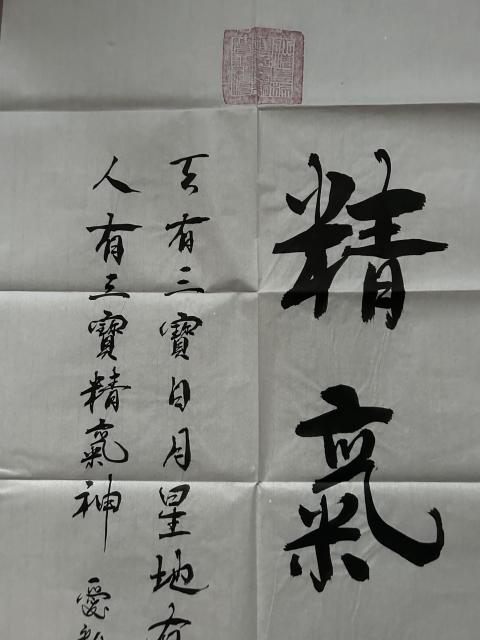 精氣
天有三寶日月星地有
人有三寶精氣神 愛新